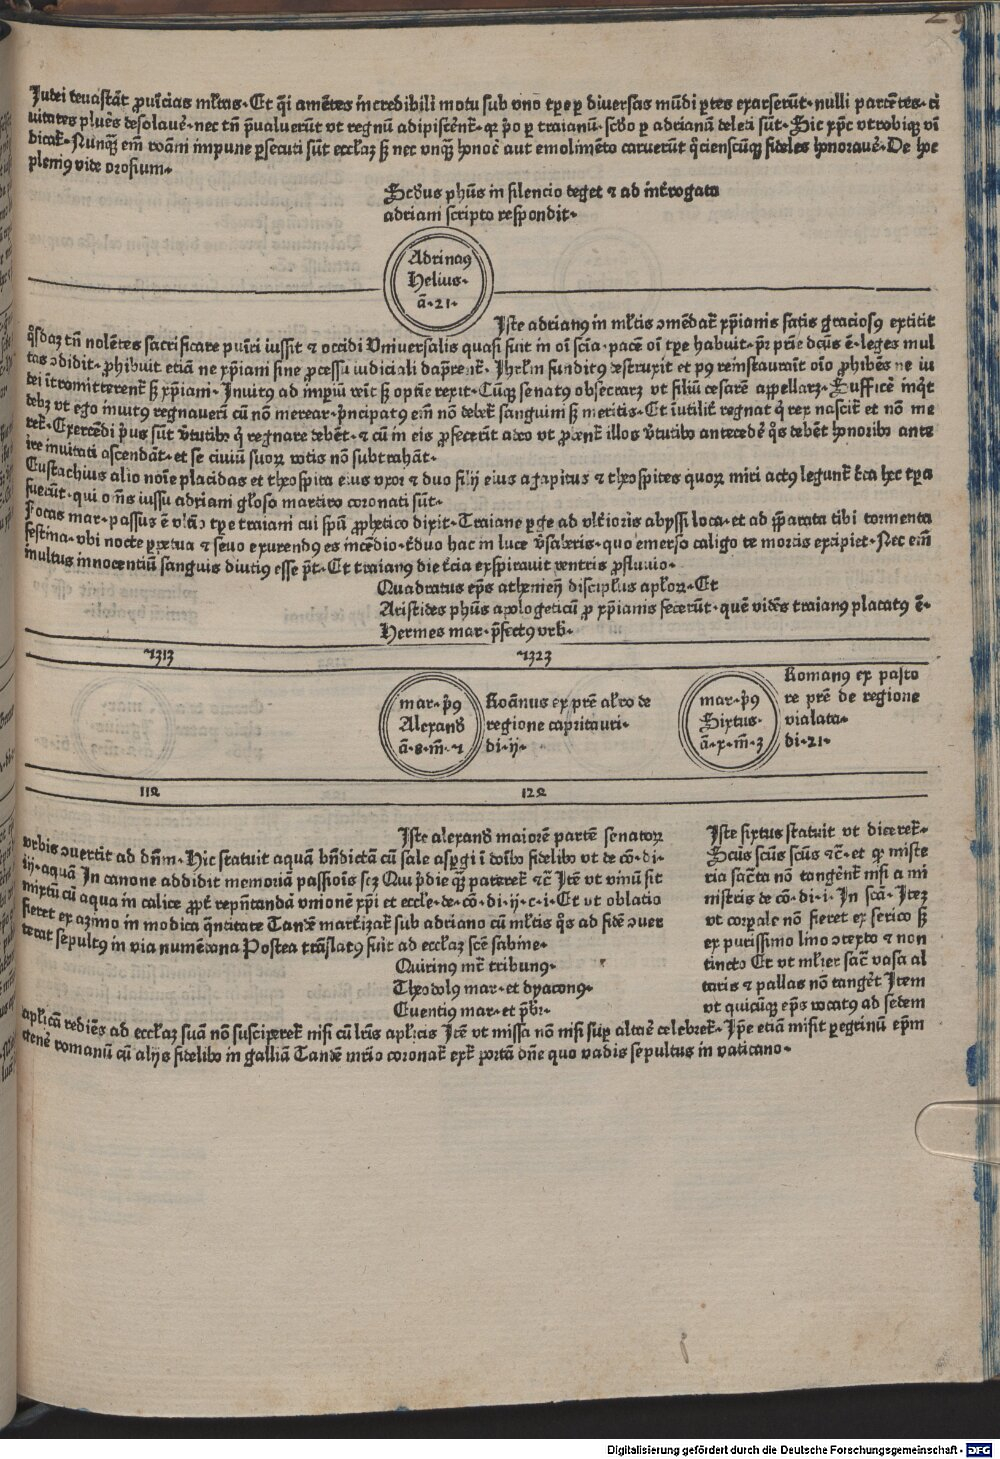 29
Judei deuastāt ꝓuīcias ml̄tas· Et q̄i amētes incredibili motu sub vno tꝑe ꝑ diuersas mūdi ꝑtes exarserūt· nulli parcētes· ci
uitates plures desolauer̄· nec tn̄ p̄ualuerūt vt regnū adipiscēnt̄· qꝛ p̄o ꝑ traianū· scd̄o ꝑ adrianū deleti sūt· Sic xp̄c vtrobiqꝫ vī
dicat̄· Nunqꝫ em̄ roāni impune ꝑsecuti sūt eccl̄iaꝫ sꝫ nec vnqꝫ honoē aut emolimēto caruerūt q̄cienscūqꝫ fideles honorauer̄· De hoc
pleniꝰ vide orosium·
Scd̄us ph̄us in silencio deget ⁊ ad int̄rogata
adriani scripto respondit·
Adrinaꝰ
Helius·
ā· 21·
Iste adrianꝰ in ml̄tis ꝯmēdat̄ xp̄ianis satis graciosꝰ extitit
q̄sdaꝫ tn̄ nolētes sacrificare puīri iussit ⁊ occidi Vniuersalis quasi fuit in oī scīa· pacē oī tꝑe habuit· pr̄ pr̄ie dc̄us ē· leges mul
tas ꝯdidit· ꝓhibuit etiā ne xp̄iani sine ꝓcessu iudiciali dāp̄rent̄· Ihrl̄m funditꝰ destruxit et pꝰ reinstaurait oīo ꝓhibēs ne iu
dei ītromitterent̄ sꝫ xp̄iani· Inuitꝰ ad imꝑiū veīt sꝫ optīe rexit· Cūqꝫ senatꝰ obsecraꝝ vt filiū cesarē appellaꝝ· Sufficē inq̄t
debꝫ vt ego inuitꝰ regnauerī cū nō merear· p̄ncipatꝰ em̄ nō debet̄ sanguini sꝫ meritis· Et iutilit̄ regnat q̄ rex nascit̄ et nō me
ret̄· Exercēdi p̄us sūt v̄tutibo q̄ regnare debēt· ⁊ cū in eis ꝓfecerīt adeo vt ꝓbent̄ illos v̄tutibo antecede͞ q̄s debēt honoribo ante
ire inuitati ascendāt· et se ciuiū suoꝝ votis nō subtrahāt·
Eustachius alio noīe placidas et theospita eius vxor ⁊ duo filij eius agapitus ⁊ theospites quoꝝ miri actꝰ legunt̄ t̄ca hec tꝑa
fuerūt· qui om̄s iussu adriani gl̄oso martirio coronati sūt·
Focas mar· passus ē vltīo tꝑe traiani cui spū ꝓphetico dixit· Traiane ꝑge ad vlt̄ioris abyssi loca· et ad p̄parata tibi tormenta
festina· vbi nocte ꝑpetua ⁊ seuo exurendꝰ es incēdio· t̄duo hac in luce v̄saberis· quo emerso caligo te mortis excipiet· Nec em̄
inultus innocentiū sanguis diutius esse pt̄· Et traianꝰ die t̄cia exspirauit ventris ꝓfluuio·
Quadratus ep̄s atheneñ discipl̄us apl̄oꝝ· Et
Aristides ph̄us apologeticū ꝓ xp̄ianis fecerūt· quē vidēs traianꝰ placatꝰ ē·
Hermes mar· p̄fectꝰ vrb·
1313
1323
mar· p̄9
Alexand̄
ā· 8· m̄· ⁊
Roānus ex pr̄e alt̄o de
regione capritauri·
di· ij·
mar· p̄9
Sixtus·
ā· x· m̄· 3
Romanꝰ ex pasto
re pr̄e de regione
vialata·
di· 21·
112
122
Iste alexand̄ maiorē partē senatoꝝ
vrbis ꝯuertit ad dn̄m· Hic statuit aquā bn̄dictā cū sale aspergi ī doībo fidelibo vt de cō· di·
iij· aquā In canone addidit memoriā passiōis scꝫ Qui p̄die qꝫ pateret̄ ⁊c̄ Itē vt vinū sit
mixtū cū aqua in calice ꝓpt̄ repn̄tandā vnionē xp̄i et eccl̄e· de· cō· di· ij· c· i· Et vt oblatio
fieret ex azimo in modica q̄ntitate Tandē martizat̄ sub adriano cū ml̄tis q̄s ad fidē ꝯuer
terat sepultꝰ in via numētana Postea trāslatꝰ fuit ad eccl̄iaꝫ scē sabine·
Quirinꝰ mr̄ tribunꝰ·
Theodolꝰ mar· et dyaconꝰ·
Euentiꝰ mar· et p̄br·
Iste sixtus statuit vt diceret̄·
Scūs scūs scūs ⁊c̄· et qꝛ miste
ria sacta nō tangēnt̄ nisi a mi
nistris de cō· di· i· In scā· Iteꝫ
vt corꝑale nō fieret ex serico sꝫ
ex purissimo lino ꝯtexto ⁊ non
tincto Et vt ml̄ier sac̄ vasa al
taris ⁊ pallas nō tanget̄ Item
vt quicūqꝫ ep̄s vocatꝰ ad sedem
apl̄icā rediēs ad eccl̄iaꝫ suā nō susciperet̄ nisi cū lr̄is apl̄icas Itē vt missa nō nisi suꝑ altare celebret̄· Ip̄e etiā misit ꝑegrinū ep̄m
atenē romanū cū alijs fidelibo in galliā Tandē mr̄io coronat̄ ext̄ portā dn̄e quo vadis sepultus in vaticano·
Digitalisierung gefördert durch die Deutsche Forschungsgemeinschaft · DFG